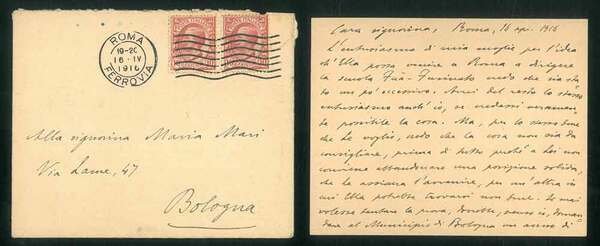 ROMA
19-20
16-IV
1916
FERROVIA
POSTE ITALIANE
Alla signorina Maria Mari
Via Lame, 47
Bologna
Cara signorina, Roma, 16 apr. 1916
L'entusiasmo di mia moglie per l'idea
ch'Ella possa venire a Roma a dirigere
la scuola Fuà-Fusinato vedo che sia stato
un po' eccessivo. Anzi del resto lo stesso
entusiasmo anch'io, se credessi veramente
possibile la cosa. Ma, per lo stesso bene
che le voglio, vedo che la cosa non sia da
consigliare, prima di tutto perché a Lei non
conviene abbandonare una posizione solida,
che le assicura l'avvenire, per un'altra in
cui Ella potrebbe trovarsi non bene. Se mai
volesse tentare la prova, dovrebbe, penso io, doman-
dare al Municipio di Bologna un anno di